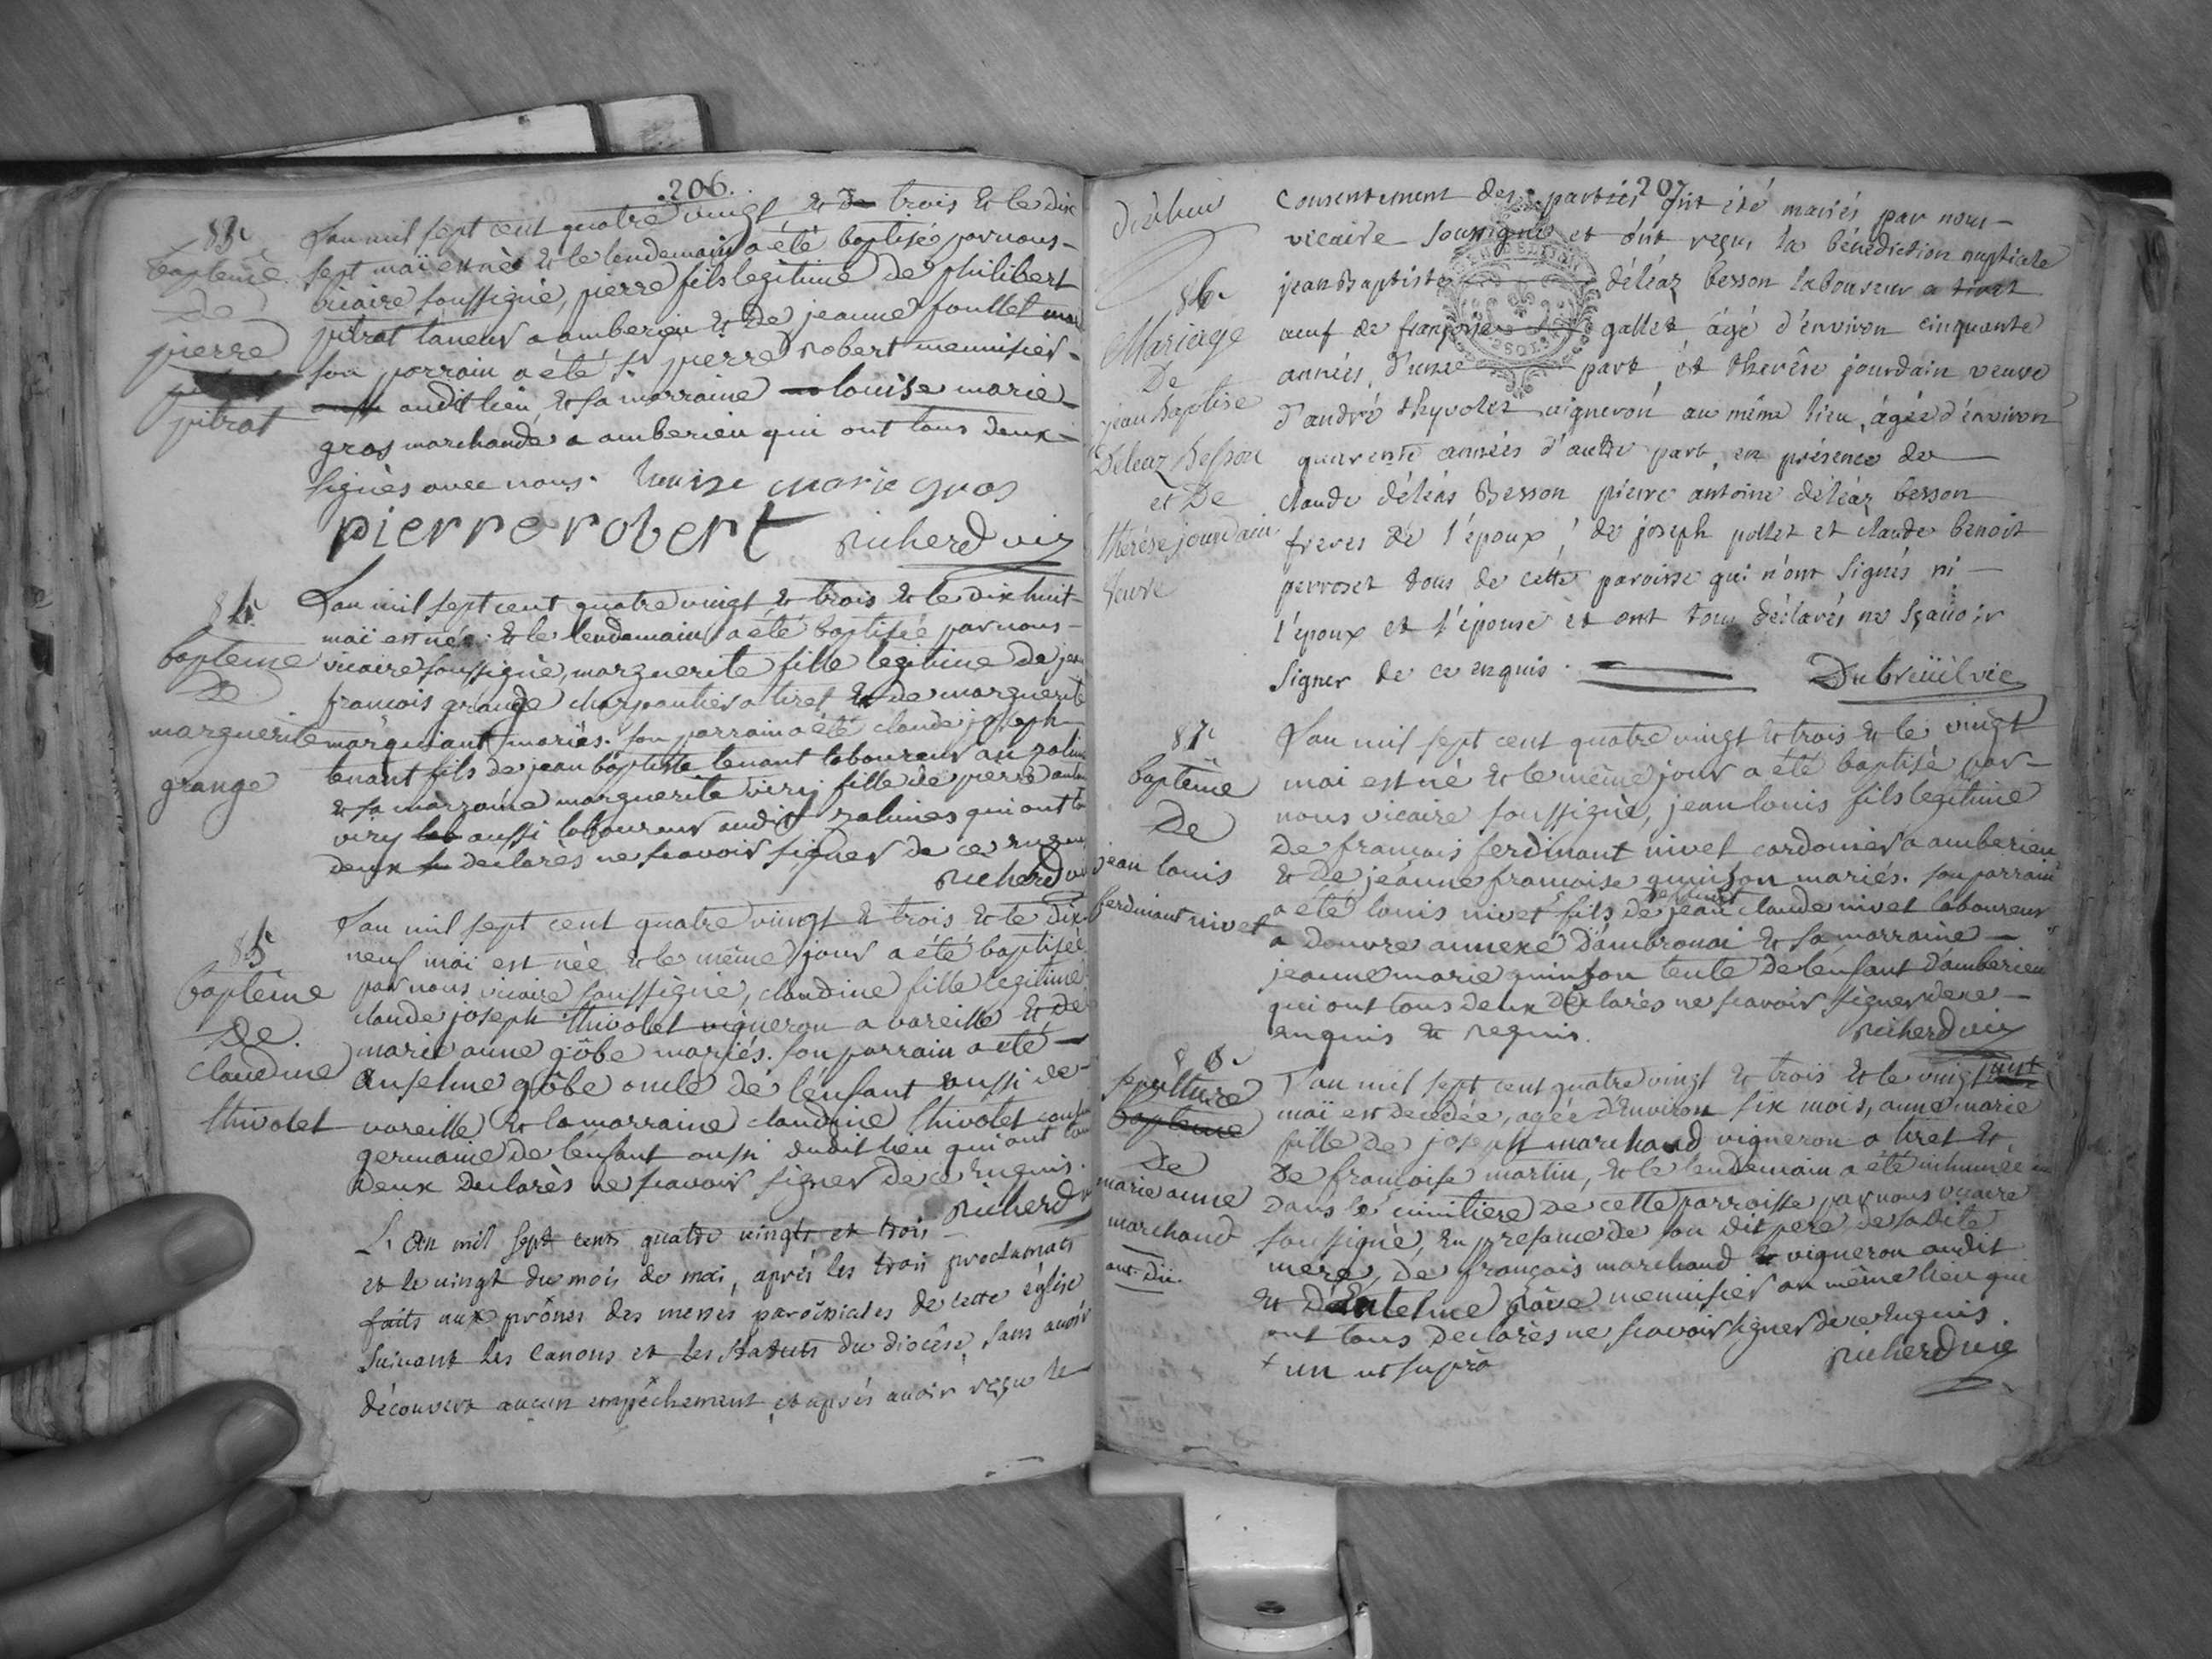 206.
83e
baptême
De
pierre
pitrat
L'an mil sept cent quatre vingt & de trois & le dix
sept maï est nè & le lendemain a été baptisé par nous
vicaire soussigné, pierre fils legitime de philibert
pitrat taneur a amberieu & de jeanne foullet
son parrain a été sr pierre robert menuisier
audit lieu, & sa marraine louise marie
gros marchande a amberieu qui ont tous deux
signès avec nous. louise marie gros
pierre robert richerd vic
84e
baptême
De
marguerite
grange
L'an mil sept cent quatre vingt & trois & le dix huit
maï est née & le lendemain a été baptisée par nous
vicaire soussignè, marguerite fille legitime de jean
francois grange charpentier a tiret & de marguerite
mariés. son parrain a été claude joseph
tenant fils de jean baptiste tenant laboureur
& sa marraine marguerite viry fille de pierre
viry lab aussi laboureur audit qui ont
deux declarès ne scavoir signer de ce
richerd vic
85e
baptême
De.
claudine
thivolet
L'an mil sept cent quatre vingt & trois & le dix
neuf maï est née & le même jour a été baptisée
par nous vicaire soussigné, claudine fille legitime
claude joseph thivolet vigneron a vareille & de
marie anne gôbe mariés. son parrain a été
anselme gôbe oncle de l'enfant aussi de
vareille & la marraine claudine thivolet
germaine de l'enfant aussi dudit lieu qui ont
deux declarès ne scavoir signer de ce enquis.
richerd
L'an mil sept cent quatre vingts et trois
et le vingt du mois de mai, après les trois proclamats
faits aux prônes des messes paroissiales de cette église
suivant les canons et les statuts du diocèse, sans avoir
découvert aucun empêchement, et après avoir reçu le
207
86e
Mariage
De
jean Baptiste
Deleaz Besson
et De
thérèse jourdain
veuve
consentement des parties ont été mariés par nous
vicaire soussignés et ont reçu la bénédiction nuptiale
jean Baptiste déléaz besson laboureur a tiret
veuf de françoise gallet âgé d'environ cinquante
années, d'une part, et therêse jourdain veuve
d'andré thyvolet vigneron au même lieu, âgée d'environ
quarente années d'autre part, en présence de
claude déléas Besson pierre antoine déléaz besson
freres de l'époux, de joseph pollet et claude benoit
perroset tous de cette paroisse qui n'ont signés ni
l'époux et l'épouse et ont tous déclarés ne sçavoir
signer de ce enquis. Dubreüil vic
87e
baptême
De
jean louis
ferdinant nivet
L'an mil sept cent quatre vingt & trois & le vingt
mai est né & le même jour a été baptisé par
nous vicaire soussigné, jean louis fils legitime
de francois ferdinant nivet cordonier a amberieu
& de jeanne francoise quinson mariés. son parrain
a été louis nivet fils de deffunt jean claude nivet laboureur
a douvre annexe d'ambronai & sa marraine
jeanne marie quinson tente de l'enfant d'amberieu
qui ont tous deux declarès ne scavoir signer de ce
enquis & requis. richerd vic
88e
sepulture
baptême
De
marie anne
marchand
L'an mil sept cent quatre vingt & trois & le vingt
maï est decedée, agée d'environ six mois, anne marie
fille de joseph marchand vigneron a tiret &
de francoise martin, & le lendemain a été inhumée
dans le cimitiere de cette parroisse par nous vicaire
soussigné, en presance de son dit pere, de sa dite
mere, de françois marchand vigneron audit
& d'antelme menuisier au même lieu qui
ont tous declarès ne scavoir signer de ce enquis.
+ un ut supra richerd vic